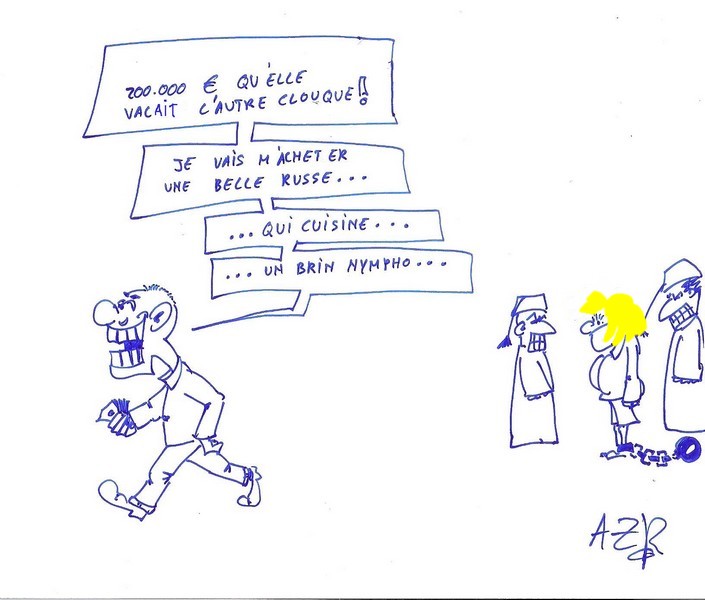 200.000 € QU'ELLE
VALAIT L'AUTRE CLOUQUE!!
JE VAIS M'ACHETER
UNE BELLE RUSSE...
...QUI CUISINE...
...UN BRIN NYMPHO...
AZR